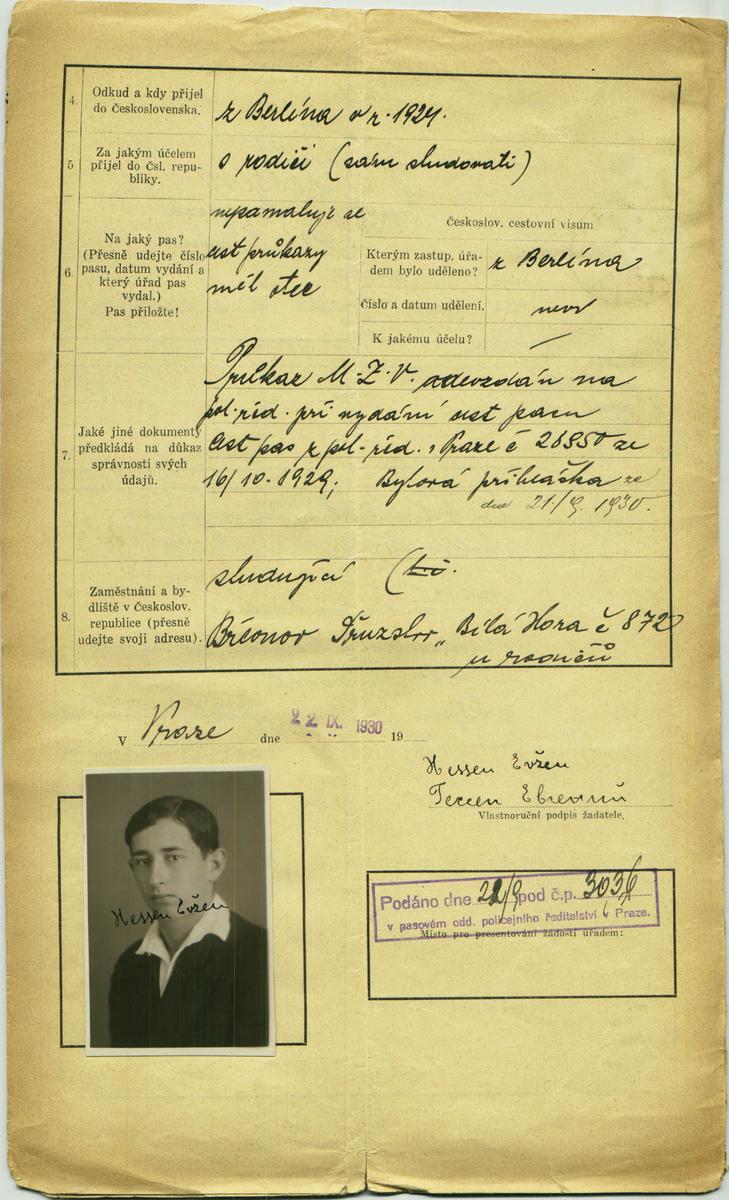 4. Odkud a kdy přijel
do Československa.
z Berlína v r. 1924.
5 Za jakým účelem
přijel do Čsl. repu-
bliky.
s rodiči (sám studovati)
6. Na jaký pas?
(Přesně udejte číslo
pasu, datum vydání a
který úřad pas
vydal.)
Pas přiložte!
nepamatuje se
měl otec
Českoslov. cestovní visum
Kterým zastup. úřa-
dem bylo uděleno?
z Berlína
Číslo a datum udělení.
neví
K jakému účelu? —
7. Jaké jiné dokumenty
předkládá na důkaz
správnosti svých
údajů.
Průkaz M.Z.V. odevzdán na
pol. řed. při vydání pasu
pas z pol. řed. v Praze č 26950 ze
16/10.1929; Bytová přihláška ze
dne 21./9. 1930.
8. Zaměstnání a by-
dliště v Českoslov.
republice (přesně
udejte svoji adresu).
studující
Břevnov Družstvo „Bílá Hora č 872
u rodičů
V Praze dne 22. IX. 1930 19
Hessen Evžen
Vlastnoruční podpis žadatele.
Hessen Evžen
Podáno dne 22/9 pod č.p. 3036
v pasovém odd. policejního ředitelství v Praze.
Místo pro presentování žádosti úřadem: